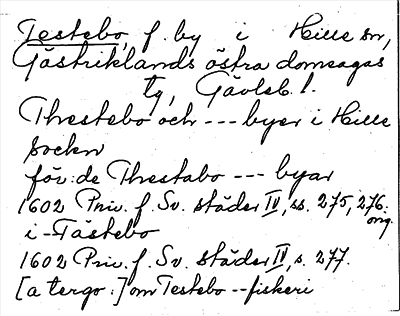 Testebo, f. by i Hille sn,
Gästriklands östra domsagas
tg, Gävleb. l.
Thestebo och --- byer i Hille
sockn
för: de Thestabo --- byar
1602 Priv. f. Sv. städer IV, ss. 275, 276.
orig.
i Tästebo
1602 Priv. f. Sv. städer IV, s. 277.
[a tergo:] om Testebo -- fiskeri